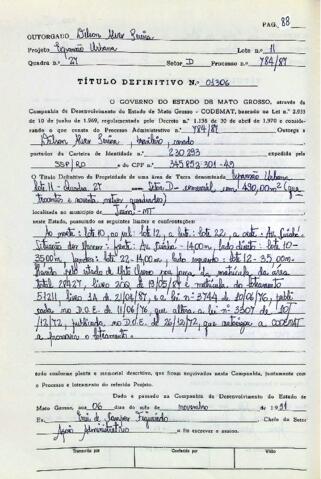 PAG. 88
OUTORGADO Wilson Alves
Projeto Expansão Urbana Lote n.º 11
Quadra n.º 27 Setor D Processo n.º 784/87
TÍTULO DEFINITIVO N.º 01306
O GOVERNO DO ESTADO DE MATO GROSSO, através da
Companhia de Desenvolvimento do Estado de Mato Grosso - CODEMAT, baseado na Lei n.º 2.033
de 10 de junho de 1.969, regulamentada pelo Decreto n.º 1.138 de 30 de abril de 1.970 e conside-
rando o que consta do Processo Administrativo n.º 784/87 Outorga a
Wilson Alves brasileiro, casado
portador da Carteira de Identidade n.º 230293 expedida pela
SSP/RO e do CPF n.º 345892301-49
O Título Definitivo de Propriedade de uma área de Terra denominada Expansão Urbana
lote 11 - Quadra 27 Setor D - comercial com 490,00m² (qua
trocentos e noventa metros quadrados)
localizada no município de MT
neste Estado, possuindo os seguintes limites e confrontações:
Ao norte: lote 10, ao sul: lote 12, a leste: lote 22, a oeste: Av. Cuiabá
Situação dos Marcos: frente: Av. Cuiabá - 14,00m, lado direito: lote 10-
35,00m, fundos: lote 22 - 14,00m, lado esquerdo: lote 12 - 35,00m.
Havida pelo Estado de Mato Grosso por força da matrícula da área
total 28427, livro 19/05/87 e matrícula do loteamento
51211, livro 3A de 21/04/87, e a lei n.º 3744 de 10/06/76, publi
cada no D.O.E. de 11/06/76, que altera a lei n.º 3307 de 10/
12/72, publicada no D.O.E. de 26/12/72, que autoriza a CODEMAT
a promover o loteamento.
tudo conforme planta e memorial descritivo, que ficam arquivados nesta Companhia, juntamente com
o Processo e loteamento do referido Projeto.
Dado e passado na Companhia de Desenvolvimento do Estado de
Mato Grosso, aos 06 dias do mês de novembro de 1991
Eu, de Campos Figueiredo Chefe do Setor
Apoio Administrativo o fiz escrever e assino.
Transcrito por Conferido por Visto